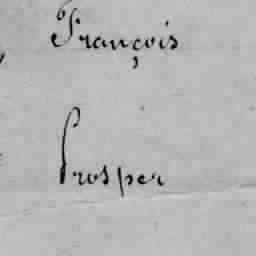 François
Prosper